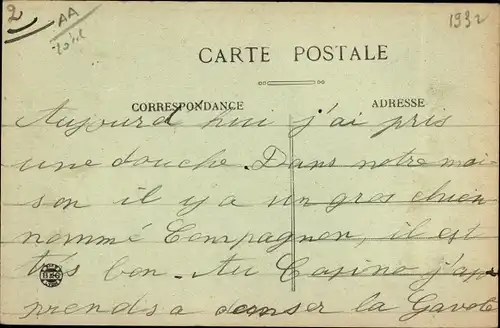 2 AA 1932
CARTE POSTALE
CORRESPONDANCE ADRESSE
Aujourd hui j'ai pris
une douche. Dans notre mai-
son il y a un gros chien
nommé Compagnon, il est
très bon. Au Casino j'ap
prends a danser la Gavote